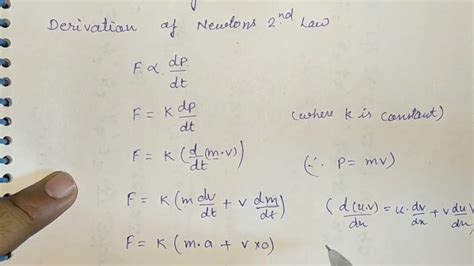 Derivation of Newtons 2nd Law
F ∝ dp/dt
F = K dp/dt (where k is constant)
F = K (d/dt (m.v)) (∵ P = mv)
F = K (m dv/dt + v dm/dt) (d(u.v)/dx = u.dv/dx + v du/
F = K (m.a + v×0)